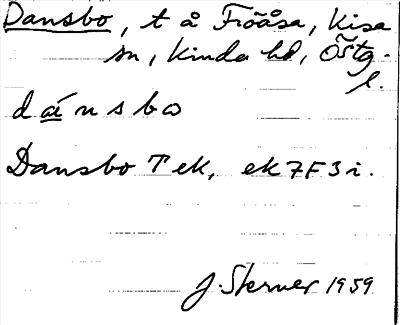 Dansbo, t å Fröåsa, Kisa
sn, Kinda hd, Östg.
l.
dánsbo
Dansbo T ek, ek 7F3i.
J. Sterner 1959